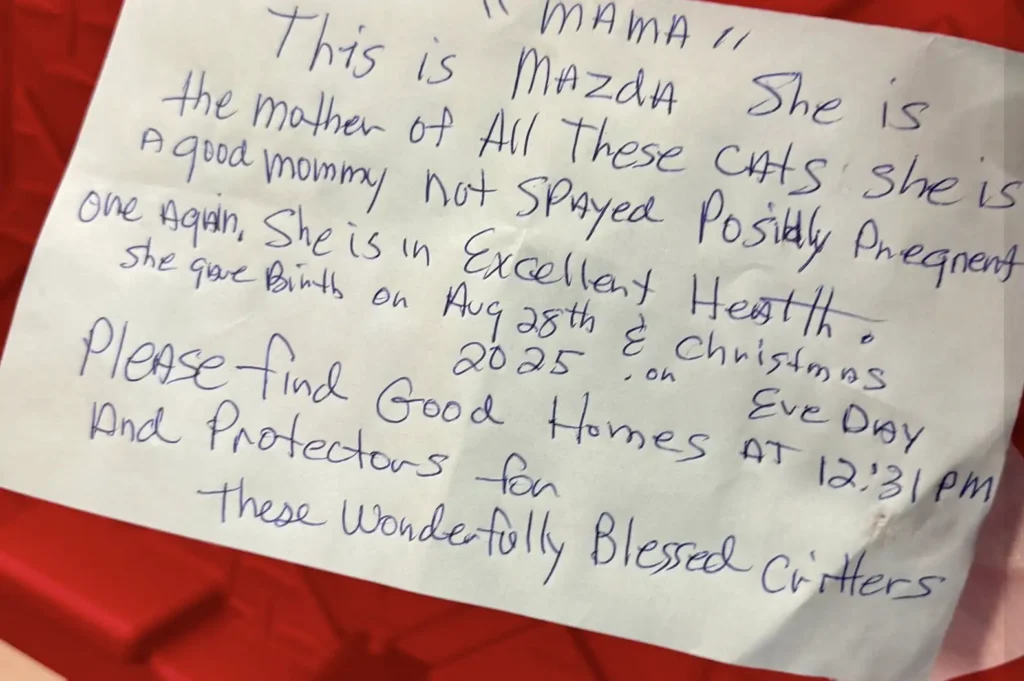 "MAMA"
This is MAzdA She is
the mother of All These CAts she is
A good mommy not SPAyed Posibly Pregnent
one Again. She is in Excellent Heatth.
She gave Birth on Aug 28th & Christmas
2025 . on Eve DAY
Please find Good Homes AT 12:31 PM
And Protectors for
these Wonderfully Blessed Critters